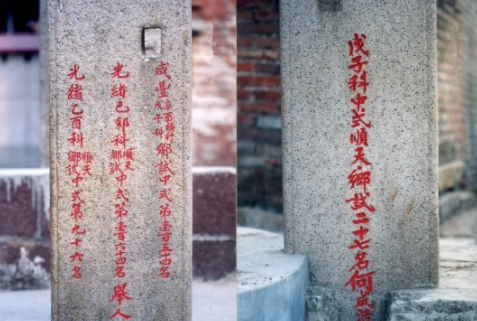 咸豐辛酉科戊子科鄉試中式第壹百五十四名
光緒己卯科順天鄉試中式第壹百六十四名舉人
光緒乙酉科順天鄉試中式第九十六名
戊子科中式順天鄉試二十七名何威